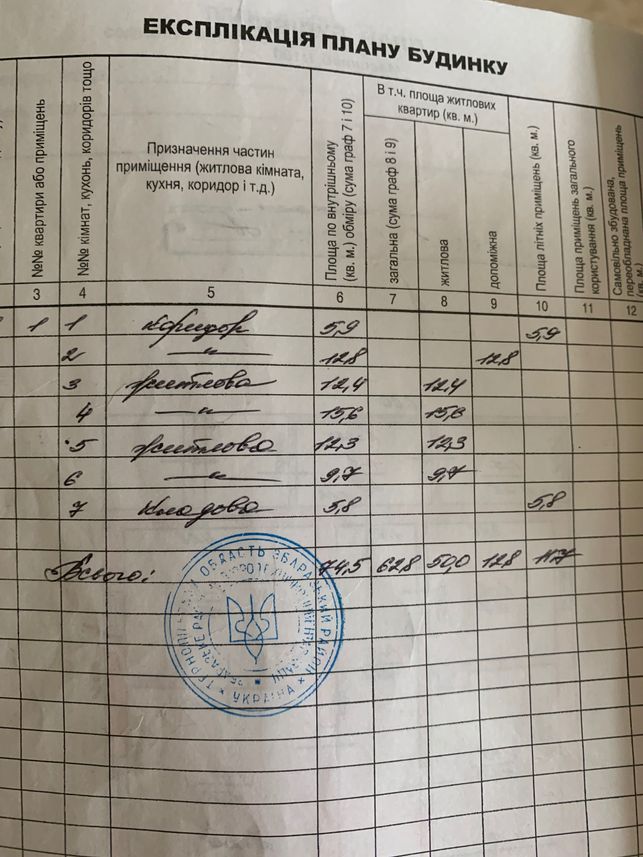 ЕКСПЛІКАЦІЯ ПЛАНУ БУДИНКУ
№№ квартири або приміщень
№№ кімнат, кухонь, коридорів тощо
Призначення частин
приміщення (житлова кімната,
кухня, коридор і т.д.)
Площа по внутрішньому
(кв. м.) обміру (сума граф 7 і 10)
В т.ч. площа житлових
квартир (кв. м.)
загальна (сума граф 8 і 9)
житлова
допоміжна
Площа літніх приміщень (кв. м.)
Площа приміщень загального
користування (кв. м.)
Самовільно збудована,
переобладнана площа приміщень
(кв. м.)
3 4 5 6 7 8 9 10 11 12
1 1 Коридор 5,9 5,9
2 — " — 12,8 12,8
3 житлова 12,4 12,4
4 — " — 15,6 15,6
5 житлова 12,3 12,3
6 — " — 9,7 9,7
7 Кладова 5,8 5,8
Всього: 74,5 62,8 50,0 12,8 11,7
ТЕРНОПІЛЬСЬКА ОБЛАСТЬ ЗБАРАЗЬКИЙ РАЙОН
УКРАЇНА